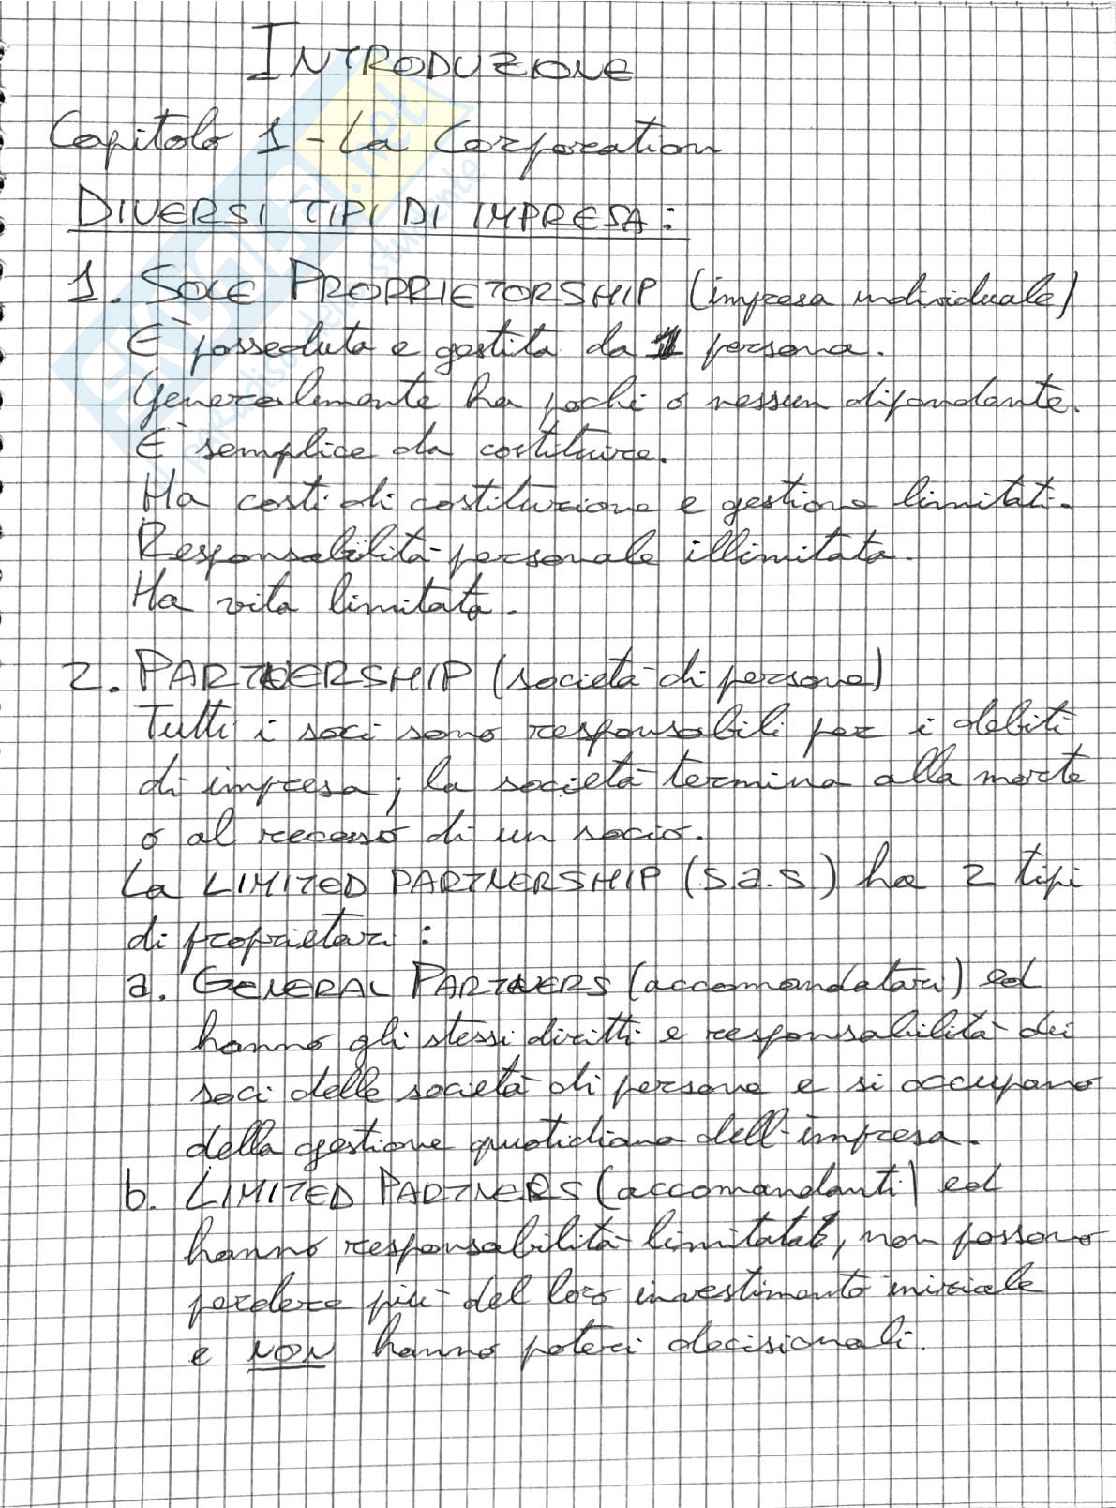 INTRODUZIONE
Capitolo 1 - La Corporation
DIVERSI TIPI DI IMPRESA:
1. SOLE PROPRIETORSHIP (impresa individuale)
E' posseduta e gestita da 1 persona.
Generalmente ha pochi o nessun dipendente.
E' semplice da costituire.
Ha costi di costituzione e gestione limitati.
Responsabilità personale illimitata.
Ha vita limitata.
2. PARTNERSHIP (società di persone)
Tutti i soci sono responsabili per i debiti
di impresa; la società termina alla morte
o al recesso di un socio.
La LIMITED PARTNERSHIP (s.a.s.) ha 2 tipi
di proprietari:
a. GENERAL PARTNERS (accomandatari) ed
hanno gli stessi diritti e responsabilità dei
soci delle società di persone e si occupano
della gestione quotidiana dell'impresa.
b. LIMITED PARTNERS (accomandanti) ed
hanno responsabilità limitata, non possono
perdere più del loro investimento iniziale
e NON hanno poteri decisionali.